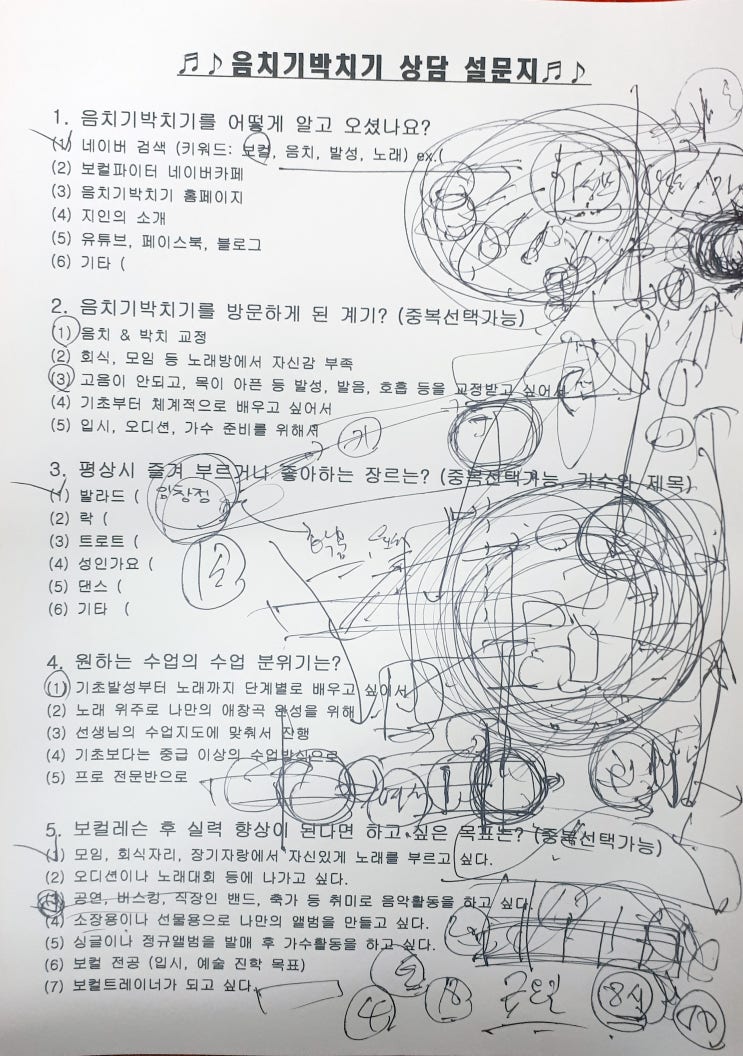 ♬♪음치기박치기 상담 설문지♬♪
1. 음치기박치기를 어떻게 알고 오셨나요?
(1) 네이버 검색 (키워드: 보컬, 음치, 발성, 노래) ex.(
(2) 보컬파이터 네이버카페
(3) 음치기박치기 홈페이지
(4) 지인의 소개
(5) 유튜브, 페이스북, 블로그
(6) 기타 (
2. 음치기박치기를 방문하게 된 계기? (중복선택가능)
(1) 음치 & 박치 교정
(2) 회식, 모임 등 노래방에서 자신감 부족
(3) 고음이 안되고, 목이 아픈 등 발성, 발음, 호흡 등을 교정받고 싶어서
(4) 기초부터 체계적으로 배우고 싶어서
(5) 입시, 오디션, 가수 준비를 위해서
3. 평상시 즐겨 부르거나 좋아하는 장르는? (중복선택가능, 가수와 제목)
(1) 발라드 ( 임창정
(2) 락 (
(3) 트로트 (
(4) 성인가요 (
(5) 댄스 (
(6) 기타 (
4. 원하는 수업의 수업 분위기는?
(1) 기초발성부터 노래까지 단계별로 배우고 싶어서
(2) 노래 위주로 나만의 애창곡 완성을 위해
(3) 선생님의 수업지도에 맞춰서 진행
(4) 기초보다는 중급 이상의 수업방식으로
(5) 프로 전문반으로
5. 보컬레슨 후 실력 향상이 된다면 하고 싶은 목표는? (중복선택가능)
(1) 모임, 회식자리, 장기자랑에서 자신있게 노래를 부르고 싶다.
(2) 오디션이나 노래대회 등에 나가고 싶다.
(3) 공연, 버스킹, 직장인 밴드, 축가 등 취미로 음악활동을 하고 싶다.
(4) 소장용이나 선물용으로 나만의 앨범을 만들고 싶다.
(5) 싱글이나 정규앨범을 발매 후 가수활동을 하고 싶다.
(6) 보컬 전공 (입시, 예술 진학 목표)
(7) 보컬트레이너가 되고 싶다.
4 8 금요일 8시